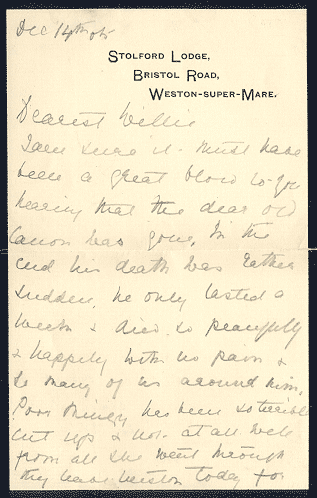 Dec 14th 05
STOLFORD LODGE,
BRISTOL ROAD,
WESTON-SUPER-MARE.
Dearest Willie
I am sure it must have
been a great blow to you
hearing that the dear old
Canon has gone, In the
end his death was rather
sudden, he only lasted a
week & died so peacefully
& happily with no pain &
so many of us around him,
Poor has been so terribly
cut up & not at all well
from all she went through
They leave Weston today for